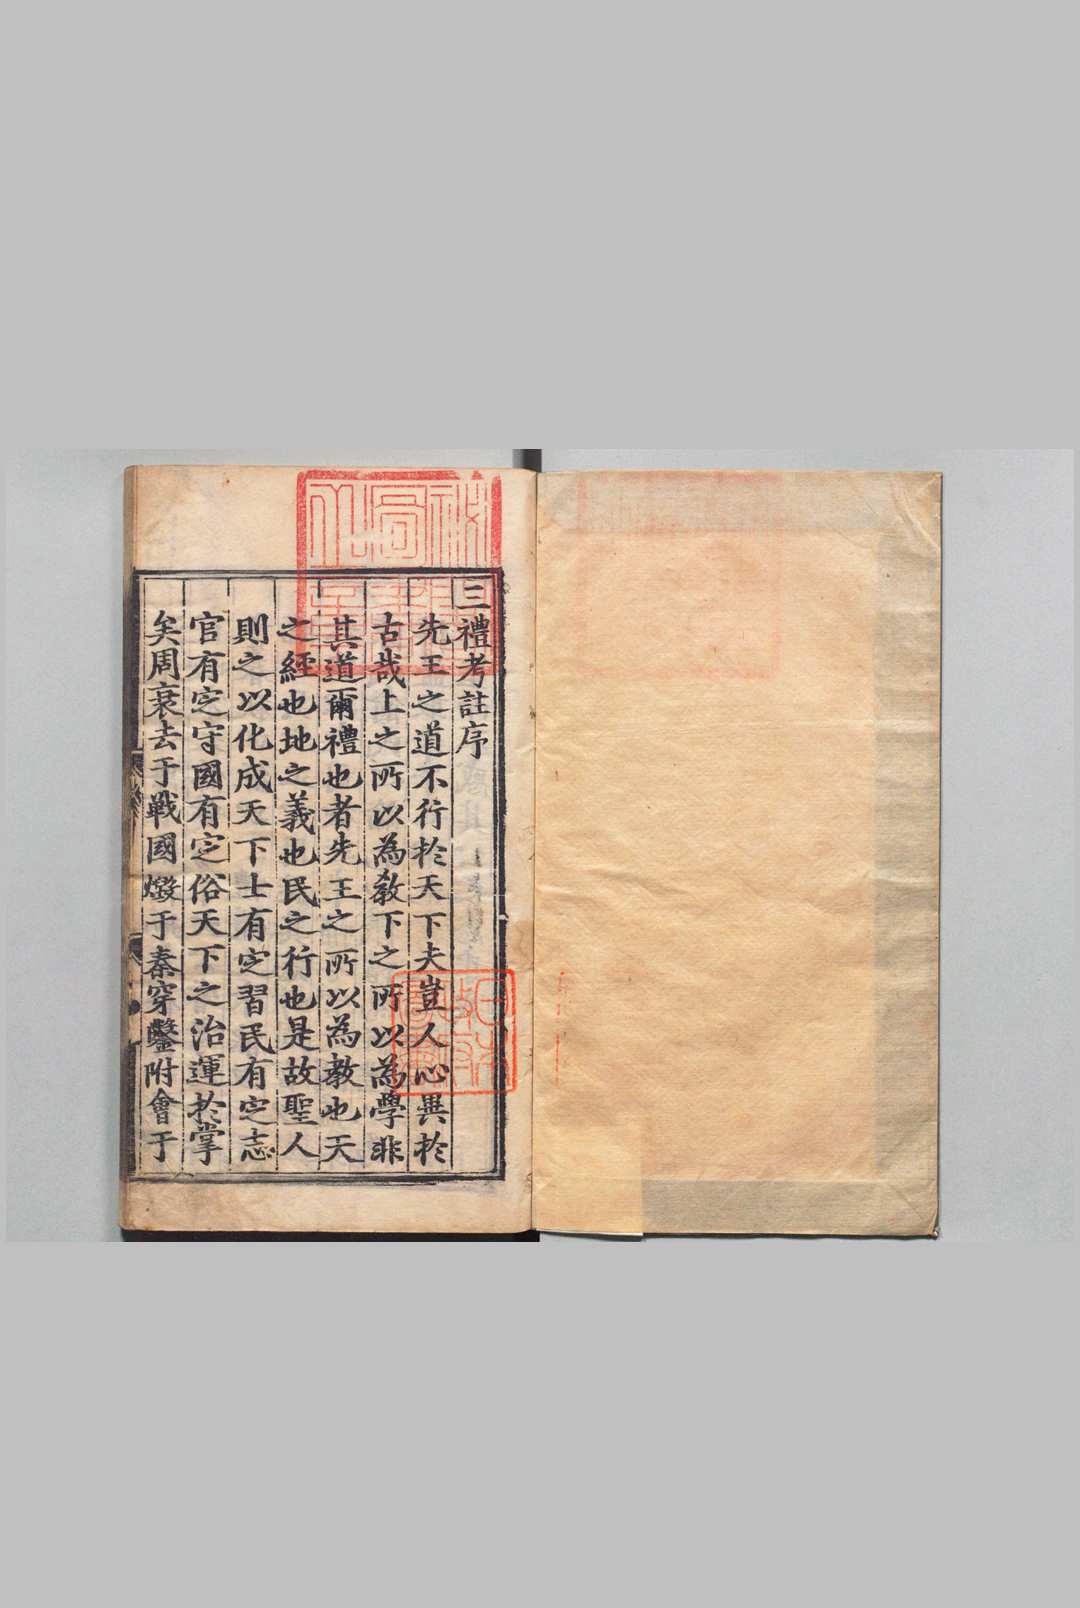 三禮考註序
先王之道不行於天下夫豈人心異於
古哉上之所以為教下之所以為學非
其道爾禮也者先王之所以為教也天
之經也地之義也民之行也是故聖人
則之以化成天下士有定習民有定志
官有定守國有定俗天下之治運於掌
矣周衰去于戰國燬于秦穿鑿附會于
日本
政府
圖書